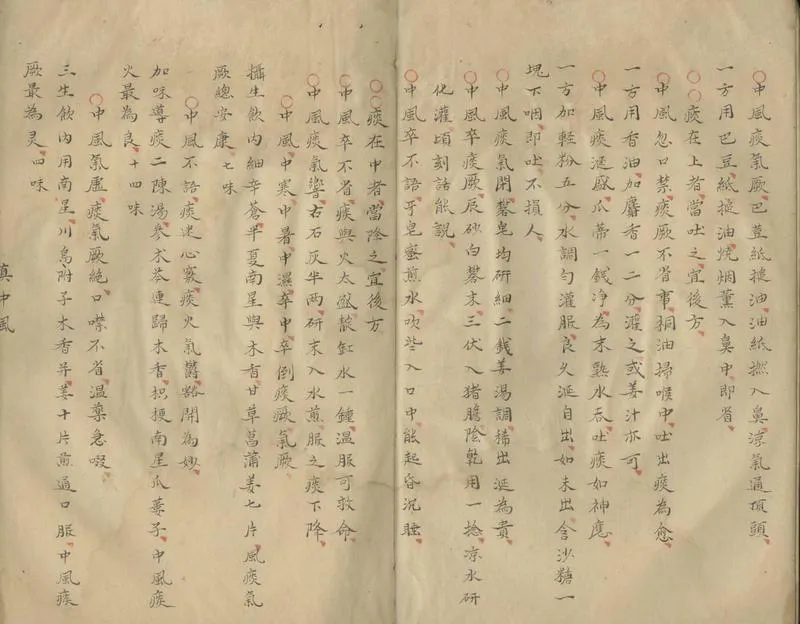 中風痰氣厥巴荳紙搥油油紙撚入鼻涼氣通頂頭
一方用巴豆紙搥油燒烟薰入鼻中即省
痰在上者當吐之宜後方
中風忽口禁痰厥不省事桐油掃喉中吐出痰為愈
一方用香油加麝香一二分灌之或姜汁亦可
中風痰涎厥瓜蒂一錢净為末熟水吞吐痰如神應
一方加輕粉五分水調勻灌服良久涎自出如未出含沙糖一
塊下咽即吐不損人
中風痰氣閉礬皂均研細二錢姜湯調稀出涎為貴
中風卒痰厥辰砂白礬末三伏入猪膽陰乾用一捻凉水研
化灌頃刻話能說
中風卒不語牙皂蜜煎水吹些入口中能起昏沉睡
痰在中者當降之宜後方
中風卒不省痰與火太盛靛缸水一鍾温服可救命
中風痰氣響古石灰半两研末入水煎服之痰下降
中風中寒中暑中濕卒中卒倒痰厥氣厥
攝生飲內細辛蒼半夏南星與木香甘草菖蒲姜七片風痰氣
厥總安康七味
中風不語痰迷心竅痰火氣欝豁開為妙
加味導痰二陳湯參术芩連歸木香枳梗南星瓜蔞子中風痰
火最為良十四味
中風氣虛痰氣厥絕口噤不省温藥急啜
三生飲內用南星川烏附子木香并姜十片煎通口服中風痰
厥最為灵四味
真中風